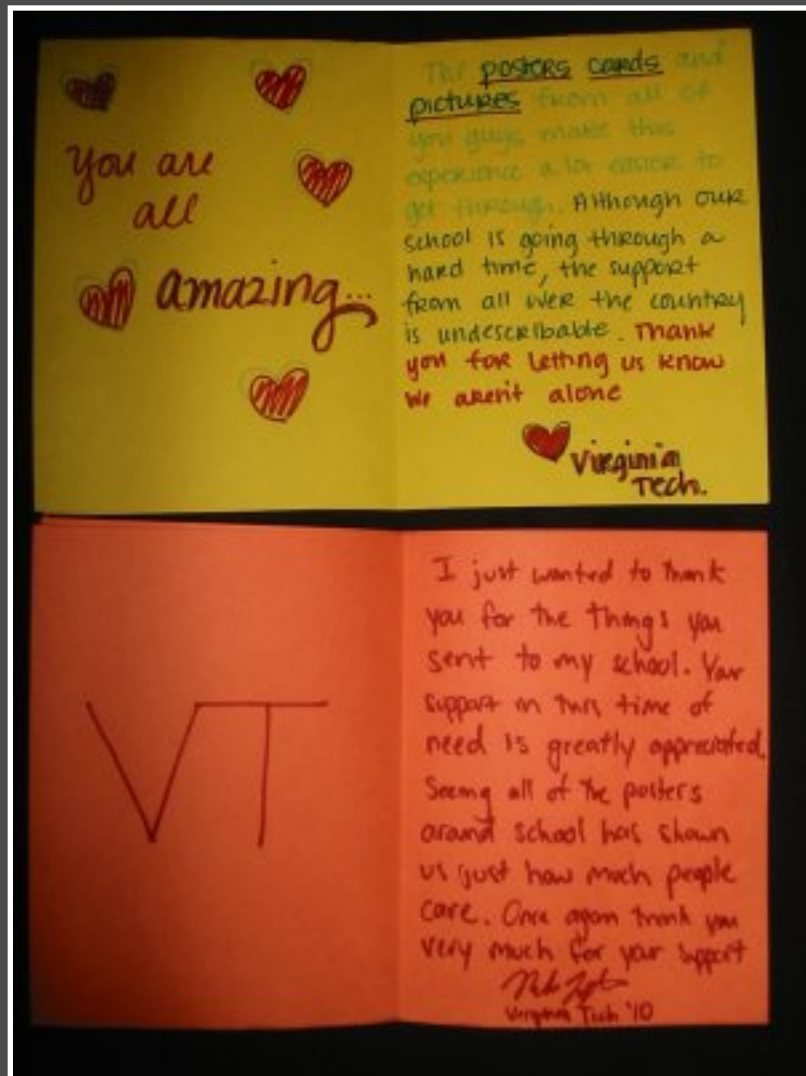 You are
all
amazing...
The posters cards and
pictures from all of
you guys make this
experience a lot easier to
get through. Although our
school is going through a
hard time, the support
from all over the country
is undescribable. Thank
you for letting us know
we aren't alone
Virginia
Tech.
VT
I just wanted to thank
you for the things you
sent to my school. Your
support in this time of
need is greatly appreciated.
Seeing all of the posters
around school has shown
us just how much people
care. Once again thank you
very much for your support
Virginia Tech '10